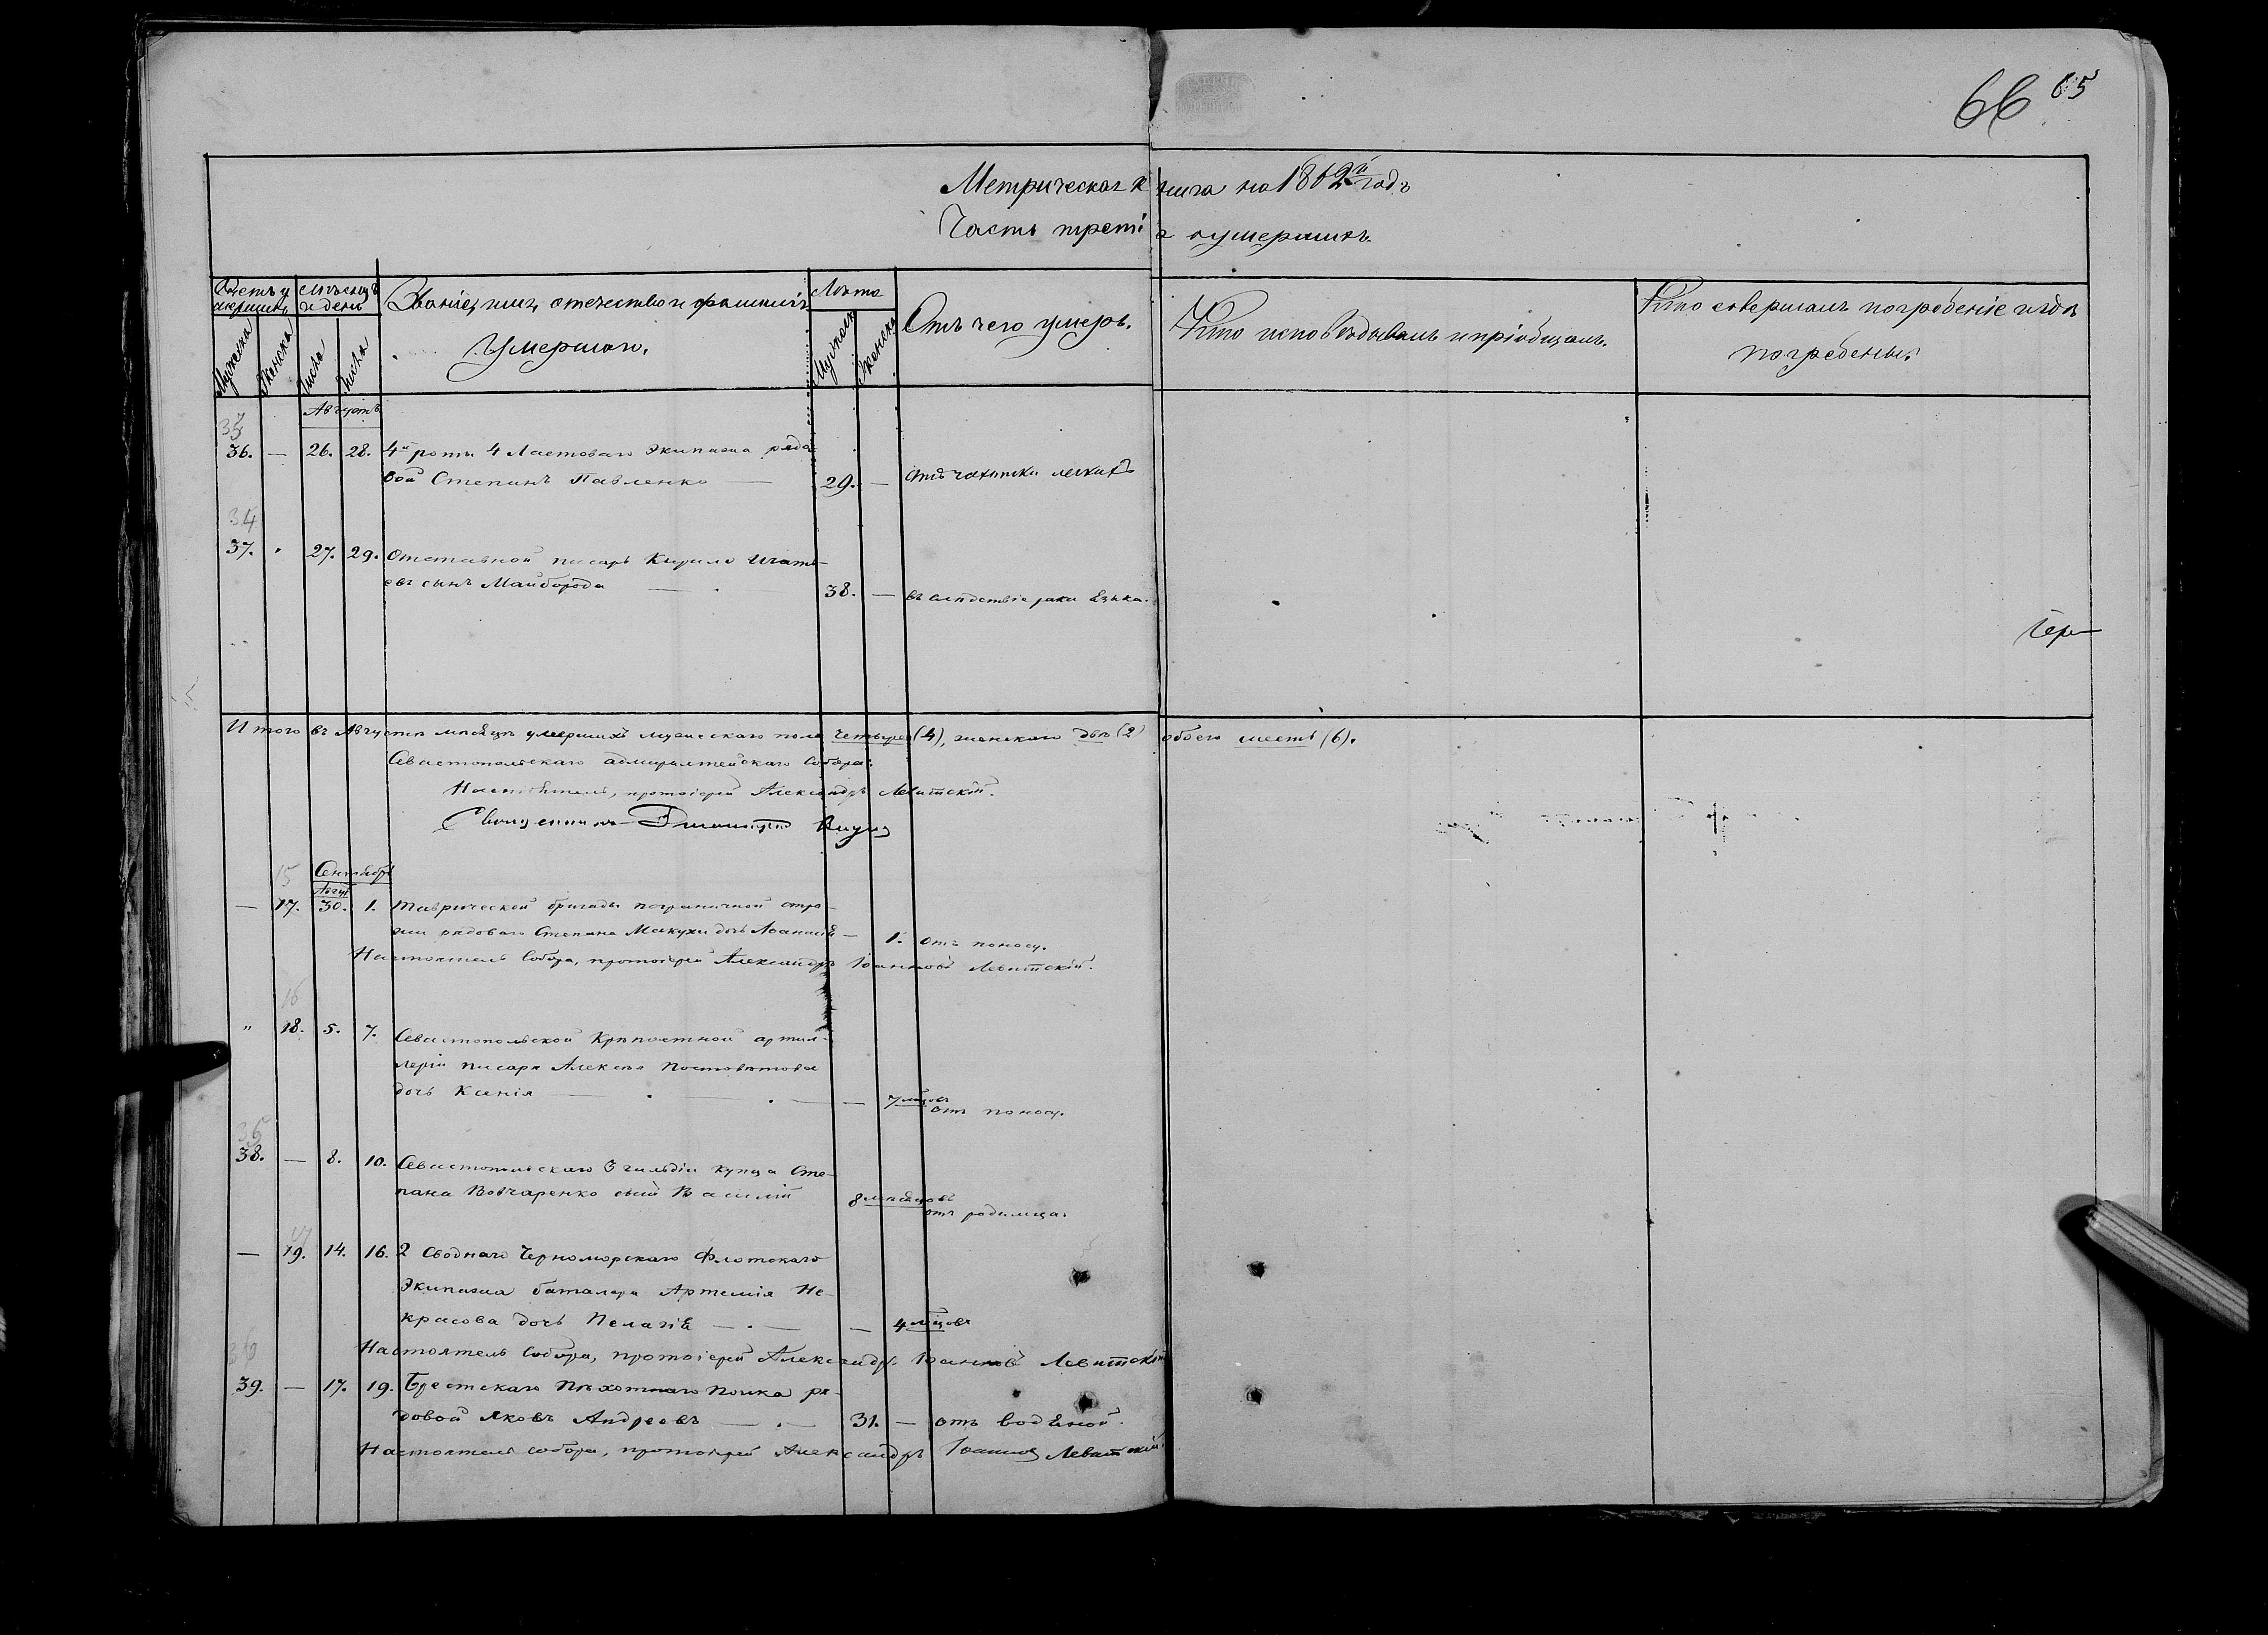 66 65
Метрическая книга на 1862й годъ
Часть третія о умершихъ.
Счетъ умершихъ
Мѣсяцъ и день
Званіе, имя, отечество и фамилія умершаго.
Лѣта
Отъ чего умеръ.
Кто исповѣдывалъ и пріобщалъ.
Кто совершалъ погребеніе и гдѣ погребены.
Мужеска Женска Числа Числа Мужеска Женска
Августъ
33
36. — 26. 28. 4й роты 4 Ластоваго Экипажа рядо-
вой Степанъ Павленко — 29. — отъ чахотки легкихъ
34
37. " 27. 29. Отставной писарь Кирило Игнать-
евъ сынъ Майборода — 38. — въ слѣдствіе рака языка.
Чер—
Итого въ Августѣ мѣсяцѣ умершихъ мужескаго пола четыре (4), женскаго двѣ (2) обоего шесть (6).
Севастопольскаго адмиралтейскаго Собора:
Настоятель, протоіерей Александръ Левитскій.
Священникъ
15 Сентябрь
Авгус
— 17. 30. 1. Таврической бригады пограничной стра-
жи рядоваго Степана Макухи дочь — 1. отъ поносу.
Настоятель Собора, протоіерей Александръ Іоанновъ Левитскій.
16
" 18. 5. 7. Севастопольской Крѣпостной артил-
леріи писаря Алексѣя Постовитова
дочь Ксенія — — 7 мѣсцовъ отъ поносу.
35
38. — 8. 10. Севастопольскаго 3 гильдіи купца Сте-
пана Вовчаренко сынъ Василій 8 мѣсяцовъ отъ родимца.
17
— 19. 14. 16. 2 Своднаго Черноморскаго Флотскаго
Экипажа баталера Артемія Не-
красова дочь Пелагія — — 4 мѣсцовъ
Настоятель Собора, протоіерей Александръ Іоанновъ Левитскій
36
39. — 17. 19. Брестскаго Пѣхотнаго Полка ря-
довой Яковъ Андреевъ — 31. — отъ водяной.
Настоятель собора, протоіерей Александръ Іоанновъ Левитскій